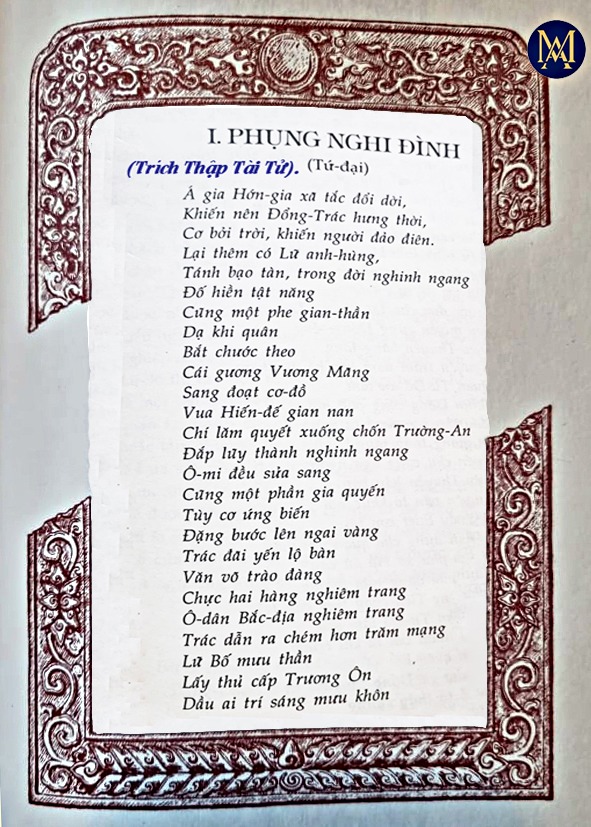 MA
I. PHỤNG NGHI ĐÌNH
(Trích Thập Tài Tử). (Tứ-đại)
Á gia Hớn-gia xã tắc đổi dời,
Khiến nên Đổng-Trác hưng thời,
Cơ bởi trời, khiến người đảo điên.
Lại thêm có Lữ anh-hùng,
Tánh bạo tàn, trong đời nghinh ngang
Đố hiền tật năng
Cũng một phe gian-thần
Dạ khi quân
Bắt chước theo
Cái gương Vương Mãng
Sang đoạt cơ-đồ
Vua Hiến-đế gian nan
Chí lăm quyết xuống chốn Trường-An
Đắp lũy thành nghinh ngang
Ô-mi đều sửa sang
Cũng một phần gia quyến
Tùy cơ ứng biến
Đặng bước lên ngai vàng
Trác đãi yến lộ bàn
Văn võ trào đàng
Chực hai hàng nghiêm trang
Ô-dân Bắc-địa nghiêm trang
Trác dẫn ra chém hơn trăm mạng
Lữ Bố mưu thần
Lấy thủ cấp Trương Ôn
Dầu ai trí sáng mưu khôn